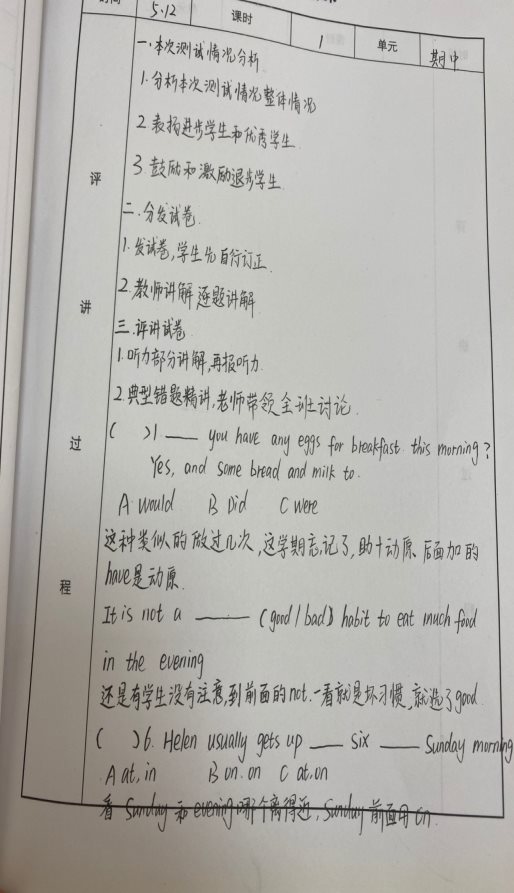 时间 5.12 课时 1 单元 期中
一.本次测试情况分析
1.分析本次测试情况整体情况
2.表扬进步学生和优秀学生.
3.鼓励和激励退步学生
二.分发试卷.
1.发试卷,学生先自行订正.
2.教师讲解逐题讲解
三.评讲试卷.
1.听力部分讲解,再报听力.
2.典型错题精讲,老师带领全班讨论.
( )1 ____ you have any eggs for breakfast this morning?
Yes, and some bread and milk to.
A would B Did C were
这种类似的做过几次,这学期忘记了,助+动原、后面加的
have是动原.
It is not a ____ (good / bad) habit to eat much food
in the evening
还是有学生没有注意,到前面的not.一看就是坏习惯,就选了good.
( )6. Helen usually gets up ____ six ____ Sunday morning
A at, in B on. on C at.on
看 Sunday 和 evening哪个离得近, Sunday 前面用 on.
评讲过程